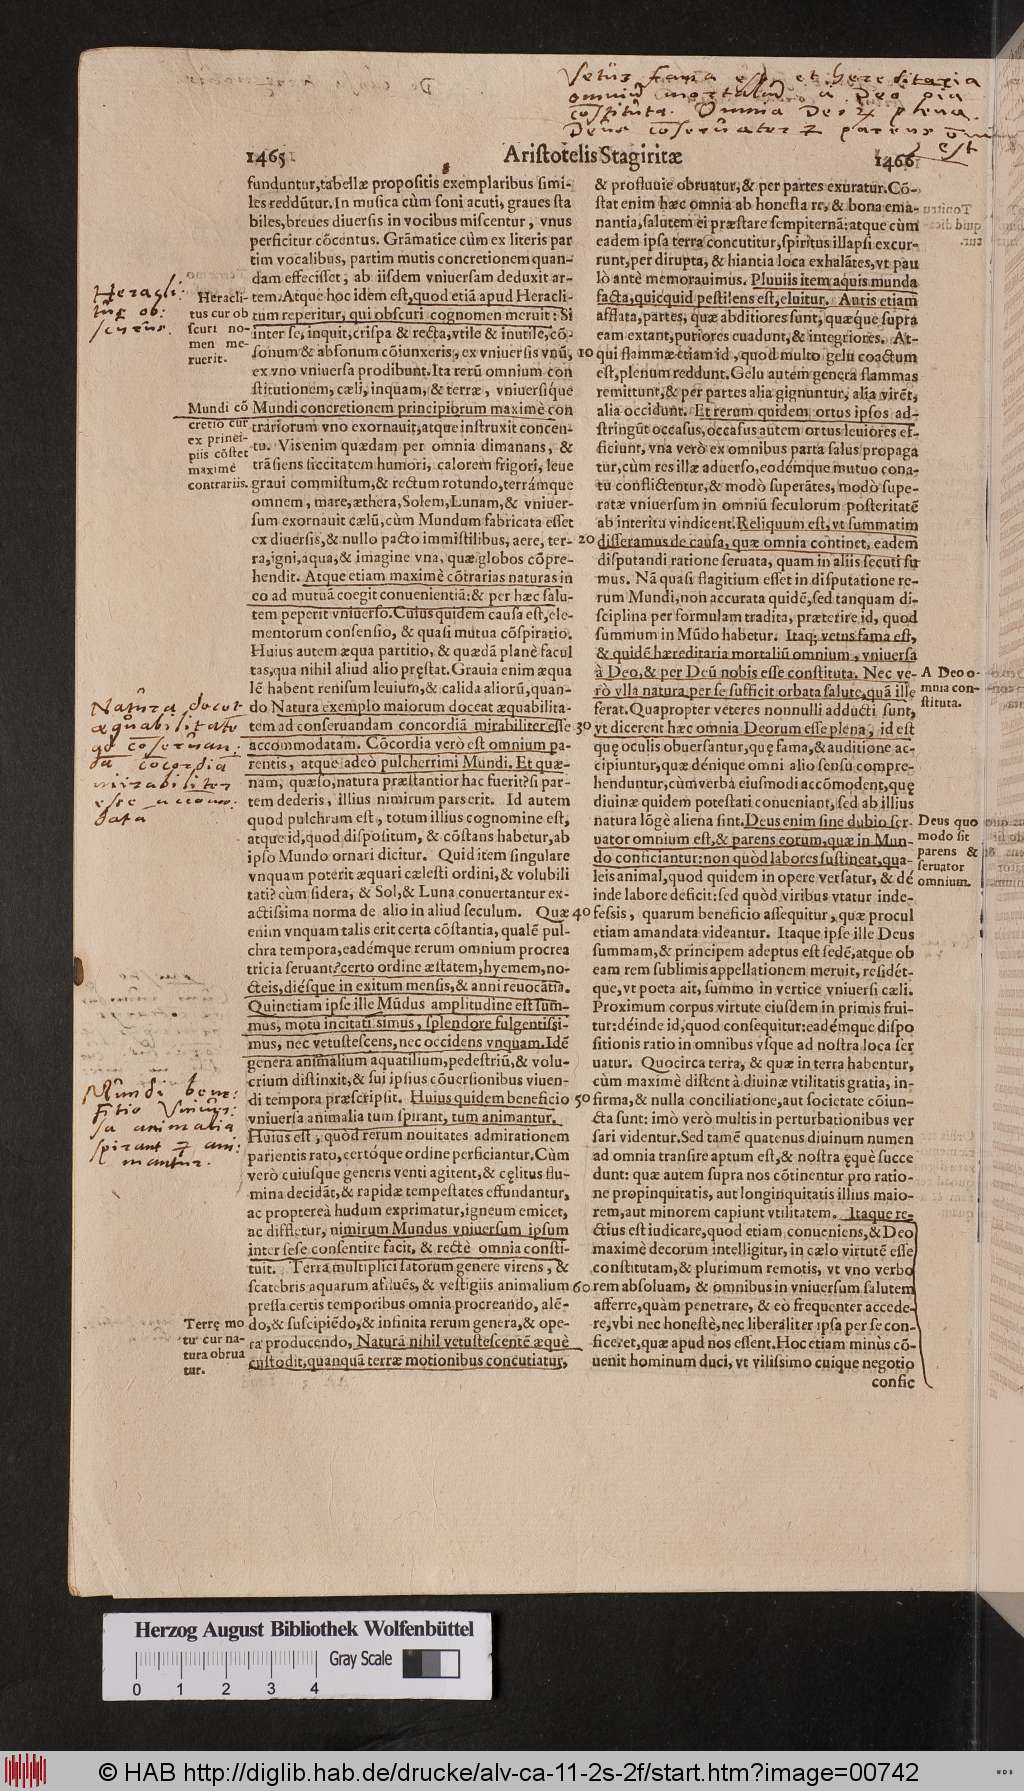 Vetus fama est et hereditaria
omniu mortaliu a Deo oia
costituta. Omnia Deor plena.
Deus coservator et parens omniu
est
1465
Aristotelis Stagiritæ
1466
funduntur, tabellæ propositis exemplaribus simi-
les reddūtur. In musica cùm soni acuti, graues sta
biles, breues diuersis in vocibus miscentur, vnus
perficitur cōcentus. Grāmatice cùm ex literis par
tim vocalibus, partim mutis concretionem quan-
dam effecisset, ab iisdem vniuersam deduxit ar-
tem. Atque hoc idem est, quod etiā apud Heracli-
tum reperitur, qui obscuri cognomen meruit: Si
inter se, inquit, crispa & recta, vtile & inutile, cō-
sonum & absonum cōiunxeris, ex vniuersis vnū,
ex vno vniuersa prodibunt. Ita rerū omnium con
stitutionem, cæli, inquam, & terræ, vniuersique
Mundi concretionem principiorum maximè con
trariorum vno exornauit, atque instruxit concen-
tu. Vis enim quædam per omnia dimanans, &
trāsiens siccitatem humori, calorem frigori, leue
graui commistum, & rectum rotundo, terrámque
omnem, mare, æthera, Solem, Lunam, & vniuer-
sum exornauit cælū, cùm Mundum fabricata esset
ex diuersis, & nullo pacto immistilibus, aere, ter-
ra, igni, aqua, & imagine vna, quæ globos cōpre-
hendit. Atque etiam maximè cōtrarias naturas in
eo ad mutuā coegit conuenientiā: & per hæc salu-
tem peperit vniuerso. Cuius quidem causa est, ele-
mentorum consensio, & quasi mutua cōspiratio.
Huius autem æqua partitio, & quædā planè facul
tas, qua nihil aliud alio pręstat. Grauia enim æqua
lē habent renisum leuium, & calida aliorū, quan-
do Natura exemplo maiorum doceat æquabilita-
tem ad conseruandam concordiā mirabiliter esse
accommodatam. Cōcordia verò est omnium pa-
rentis, atque adeò pulcherrimi Mundi. Et quæ-
nam, quæso, natura præstantior hac fuerit? si par-
tem dederis, illius nimirum pars erit. Id autem
quod pulchrum est, totum illius cognomine est,
atque id, quod dispositum, & cōstans habetur, ab
ipso Mundo ornari dicitur. Quid item singulare
vnquam poterit æquari cælesti ordini, & volubili
tati? cùm sidera, & Sol, & Luna conuertantur ex-
actissima norma de alio in aliud seculum. Quæ
enim vnquam talis erit certa cōstantia, qualē pul-
chra tempora, eadémque rerum omnium procrea
tricia seruant? certo ordine æstatem, hyemem, no-
ctéis, diésque in exitum mensis, & anni reuocātia.
Quinetiam ipse ille Mūdus amplitudine est sum-
mus, motu incitatissimus, splendore fulgentissi-
mus, nec vetustescens, nec occidens vnquam. Idē
genera animalium aquatilium, pedestriū, & volu-
crium distinxit, & sui ipsius cōuersionibus viuen-
di tempora præscripsit. Huius quidem beneficio
vniuersa animalia tum spirant, tum animantur.
Huius est, quòd rerum nouitates admirationem
parientis rato, certóque ordine perficiantur. Cùm
verò cuiusque generis venti agitent, & cęlitus flu-
mina decidāt, & rapidæ tempestates effundantur,
ac proptereà hudum exprimatur, igneum emicet,
ac diffletur, nimirum Mundus vniuersum ipsum
inter sese consentire facit, & rectè omnia consti-
tuit. Terra multiplici satorum genere virens, &
scatebris aquarum affluēs, & vestigiis animalium
pressa certis temporibus omnia procreando, alē-
do, & suscipiēdo, & infinita rerum genera, & ope-
ra producendo, Naturā nihil vetustescentē æquè
custodit, quanquā terræ motionibus concutiatur,
Heracli:
tus ob:
scurus.
Heracli-
tus cur ob
scuri no-
men me-
ruerit.
Mundi cō
cretio cur
ex princi-
piis cōstet
maximè
contrariis.
Natura docet
æquabilitate
ad coservan:
da cocordia
mirabiliter
esse accom:
data
Mundi bene:
fitio Univer:
sa animalia
spirant et ani:
mantur.
Terrę mo
tu cur na-
tura obrua
tur.
10
20
30
40
50
60
& profluuie obruatur, & per partes exuratur. Cō-
stat enim hæc omnia ab honesta re, & bona ema-
nantia, salutem ei præstare sempiternā: atque cùm
eadem ipsa terra concutitur, spiritus illapsi excur-
runt, per dirupta, & hiantia loca exhalātes, vt pau
lò antè memorauimus. Pluuiis item aquis munda
facta, quicquid pestilens est, eluitur. Autis etiam
afflata, partes, quæ abditiores sunt, quæque supra
eam extant, puriores euadunt, & integriores. At-
qui flammæ etiam id, quod multo gelu coactum
est, plenum reddunt. Gelu autem genera flammas
remittunt, & per partes alia gignuntur, alia virēt,
alia occidunt. Et rerum quidem ortus ipsos ad-
stringūt occasus, occasus autem ortus leuiores ef-
ficiunt, vna verò ex omnibus parta salus propaga
tur, cùm res illæ aduerso, eodémque mutuo cona-
tu conflictentur, & modò superātes, modò supe-
ratæ vniuersum in omniū seculorum posteritatē
ab interitu vindicent. Reliquum est, vt summatim
disseramus de causa, quæ omnia continet, eadem
disputandi ratione seruata, quam in aliis secuti su
mus. Nā quasi flagitium esset in disputatione re-
rum Mundi, non accurata quidē, sed tanquam di-
sciplina per formulam tradita, præterire id, quod
summum in Mūdo habetur. Itaq; vetus fama est,
& quidē hæreditaria mortaliū omnium, vniuersa
à Deo, & per Deū nobis esse constituta. Nec ve-
rò vlla natura per se sufficit orbata salute, quā ille
ferat. Quapropter veteres nonnulli adducti sunt,
vt dicerent hæc omnia Deorum esse plena, id est
quę oculis obuersantur, quę fama, & auditione ac-
cipiuntur, quæ dénique omni alio sensu compre-
henduntur, cùm verba eiusmodi accōmodent, quę
diuinæ quidem potestati conueniant, sed ab illius
natura lōgè aliena sint. Deus enim sine dubio ser-
uator omnium est, & parens eorum, quæ in Mun-
do conficiantur: non quòd labores sustineat, qua-
leis animal, quod quidem in opere versatur, & dé
inde labore deficit: sed quòd viribus vtatur inde-
fessis, quarum beneficio assequitur, quæ procul
etiam amandata videantur. Itaque ipse ille Deus
summam, & principem adeptus est sedē, atque ob
eam rem sublimis appellationem meruit, residét-
que, vt poeta ait, summo in vertice vniuersi cæli.
Proximum corpus virtute eiusdem in primis frui-
tur: déinde id, quod consequitur: eadémque dispo
sitionis ratio in omnibus vsque ad nostra loca ser
uatur. Quocirca terra, & quæ in terra habentur,
cùm maximè distent à diuinæ vtilitatis gratia, in-
firma, & nulla conciliatione, aut societate cōiun-
cta sunt: imò verò multis in perturbationibus ver
sari videntur. Sed tamē quatenus diuinum numen
ad omnia transire aptum est, & nostra ęquè succe
dunt: quæ autem supra nos cōtinentur pro ratio-
ne propinquitatis, aut longinquitatis illius maio-
rem, aut minorem capiunt vtilitatem. Itaque re-
ctius est iudicare, quod etiam conueniens, & Deo
maximè decorum intelligitur, in cælo virtutē esse
constitutam, & plurimum remotis, vt vno verbo
rem absoluam, & omnibus in vniuersum salutem
afferre, quàm penetrare, & eò frequenter accede-
re, vbi nec honestè, nec liberaliter ipsa per se con-
ficeret, quæ apud nos essent. Hoc etiam minùs cō-
uenit hominum duci, vt vilissimo cuique negotio
confic
A Deo o-
mnia con-
stituta.
Deus quo
modo sit
parens &
seruator
omnium.
Herzog August Bibliothek Wolfenbüttel
Gray Scale
0 1 2 3 4
© HAB http://diglib.hab.de/drucke/alv-ca-11-2s-2f/start.htm?image=00742